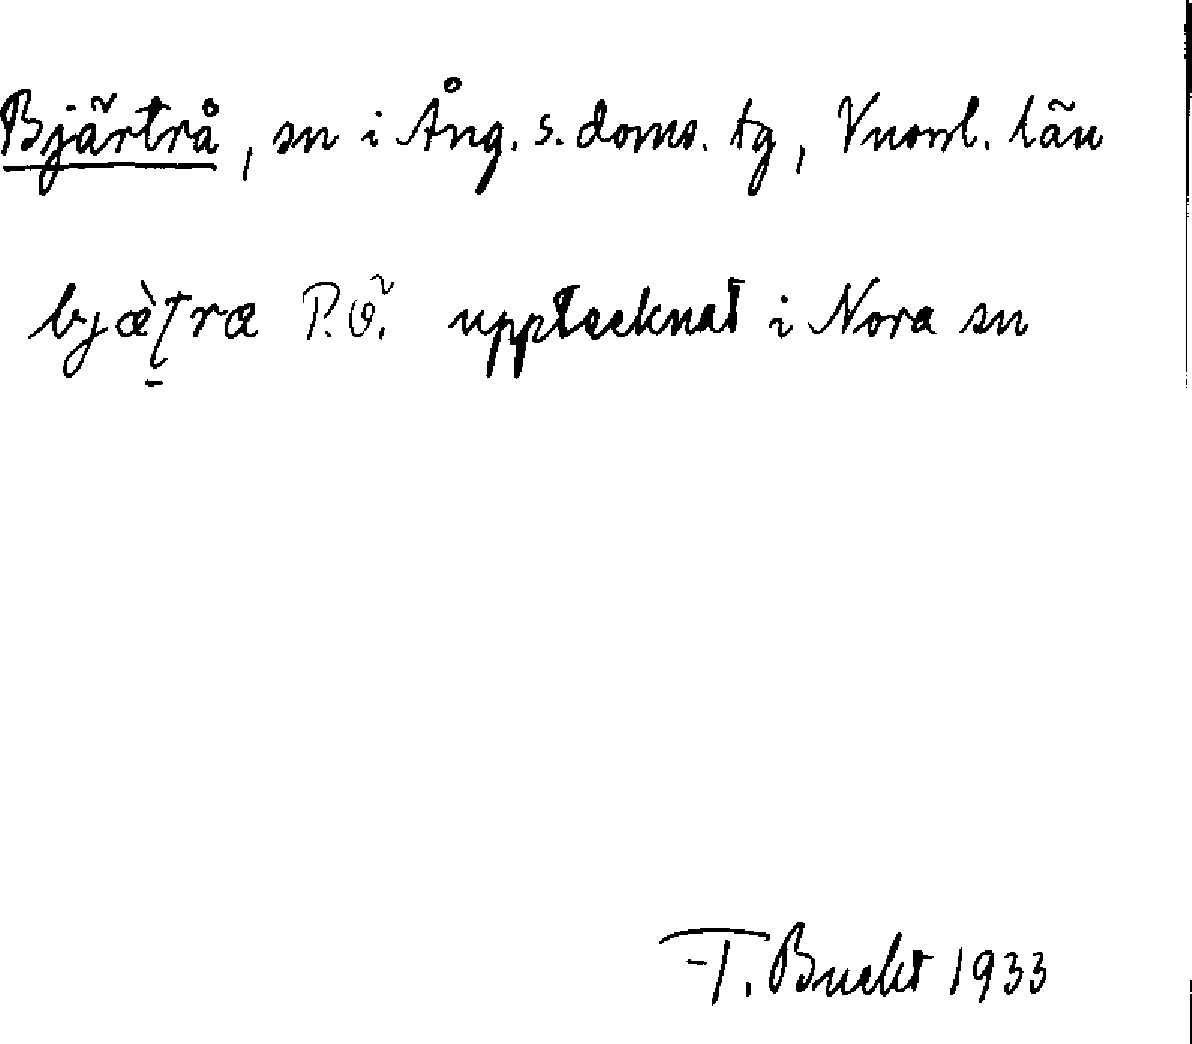 Bjärtrå, sn i Ång. s. doms. tg, Vnorrl. län
bjæ̀ʈra P.Ö. upptecknat i Nora sn
T. Bucht 1933